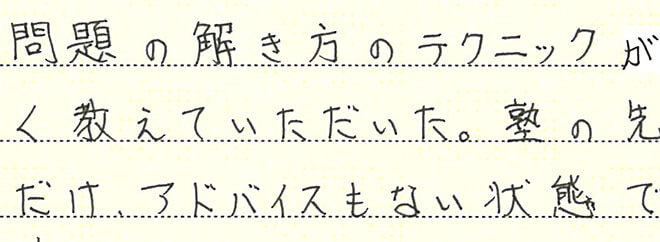 問題の解き方のテクニックが
く教えていただいた。塾の先
だけ、アドバイスもない状態で